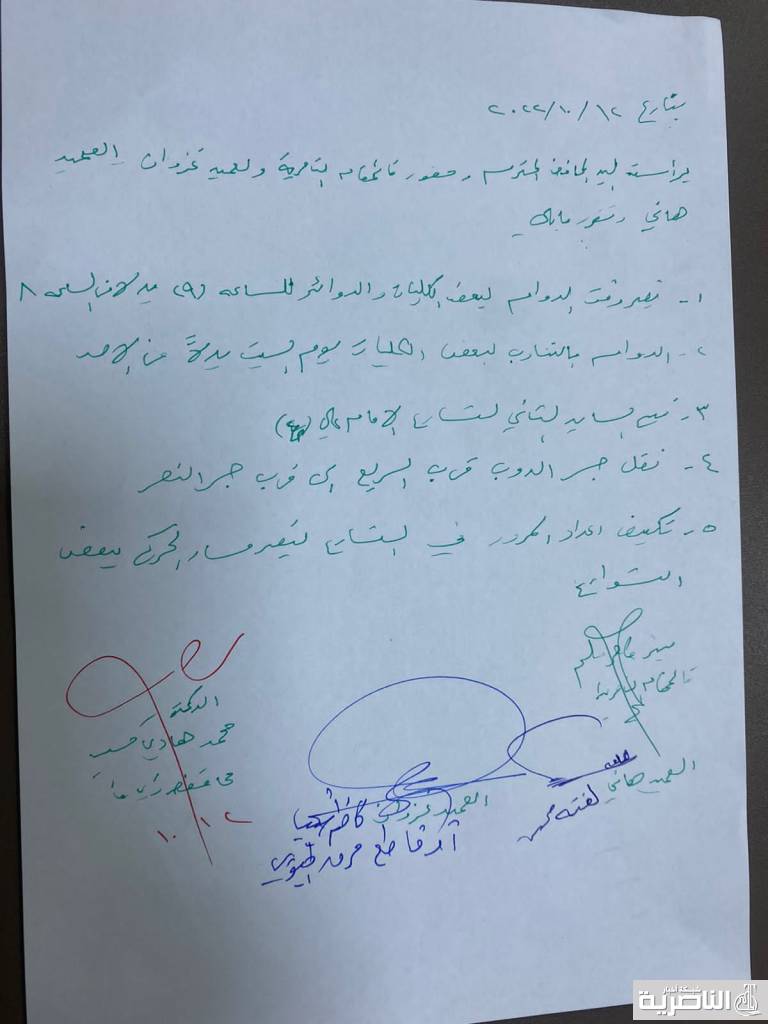 بتاريخ ٢٠٢٢/١٠/١٢
برئاسة السيد المحافظ المحترم وحضور قائممقام الناصرية والعميد غزوان والعميد
هاني وتقرر مايلي
١- تغيير وقت الدوام لبعض الكليات والدوائر للساعه (٩) بدلا من الساعه ٨
٢- الدوام بالتناوب لبعض الكليات يوم السبت بدلاً من الاحد
٣- فتح السايد الثاني لشارع الامام علي (ع)
٤- نقل جسر الدوب قرب السريع الى قرب جسر النصر
٥- تكثيف اعداد المرور في الشارع لتغيير مسار الحركة لبعض
الشوارع
قائممقام الناصرية
الدكتور
محمد هادي حسين
محافظ ذي قار
١٠/١٢
العميد هاني
لفته
العميد غزوان
كاظم
آمر قاطع مرور
شبكة أخبار
الناصرية